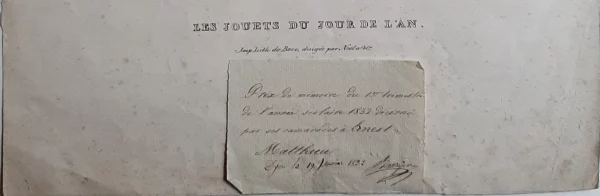 LES JOUETS DU JOUR DE L'AN.
Imp. Lith. de Bove, dirigée par Noël
Prix de mémoire du 1er trimestre
de l'année scolaire 1832 décerné
par ses camarades à Ernest
Matthieu
Lyon le 19 Janvier 1832